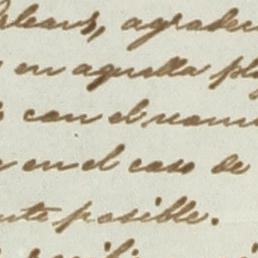 Orleans, agradec
en aquella pla
con el nom
en el caso de
nte posible.